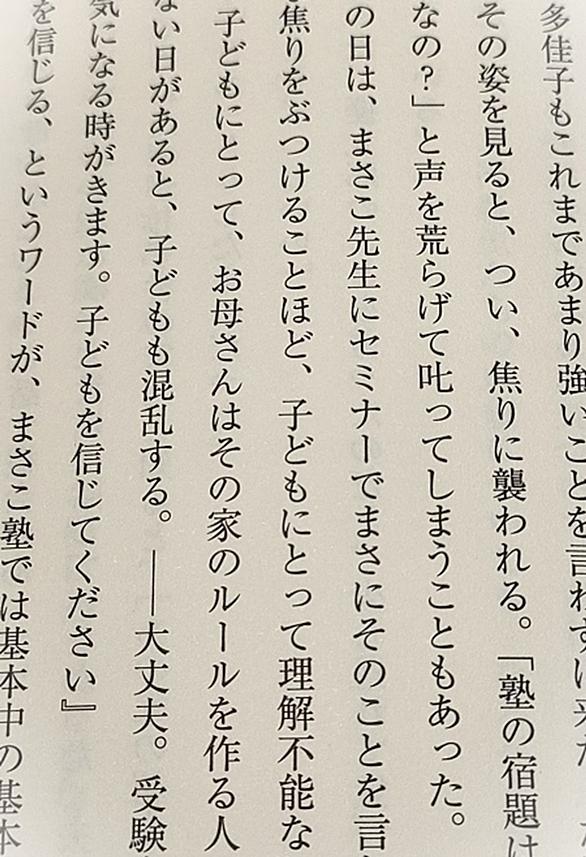 多佳子もこれまであまり強いことを言わずに来た
その姿を見ると、つい、焦りに襲われる。「塾の宿題は
なの？」と声を荒らげて叱ってしまうこともあった。
の日は、まさこ先生にセミナーでまさにそのことを言
焦りをぶつけることほど、子どもにとって理解不能な
子どもにとって、お母さんはその家のルールを作る人
ない日があると、子どもも混乱する。――大丈夫。受験
気になる時がきます。子どもを信じてください』
を信じる、というワードが、まさこ塾では基本中の基本